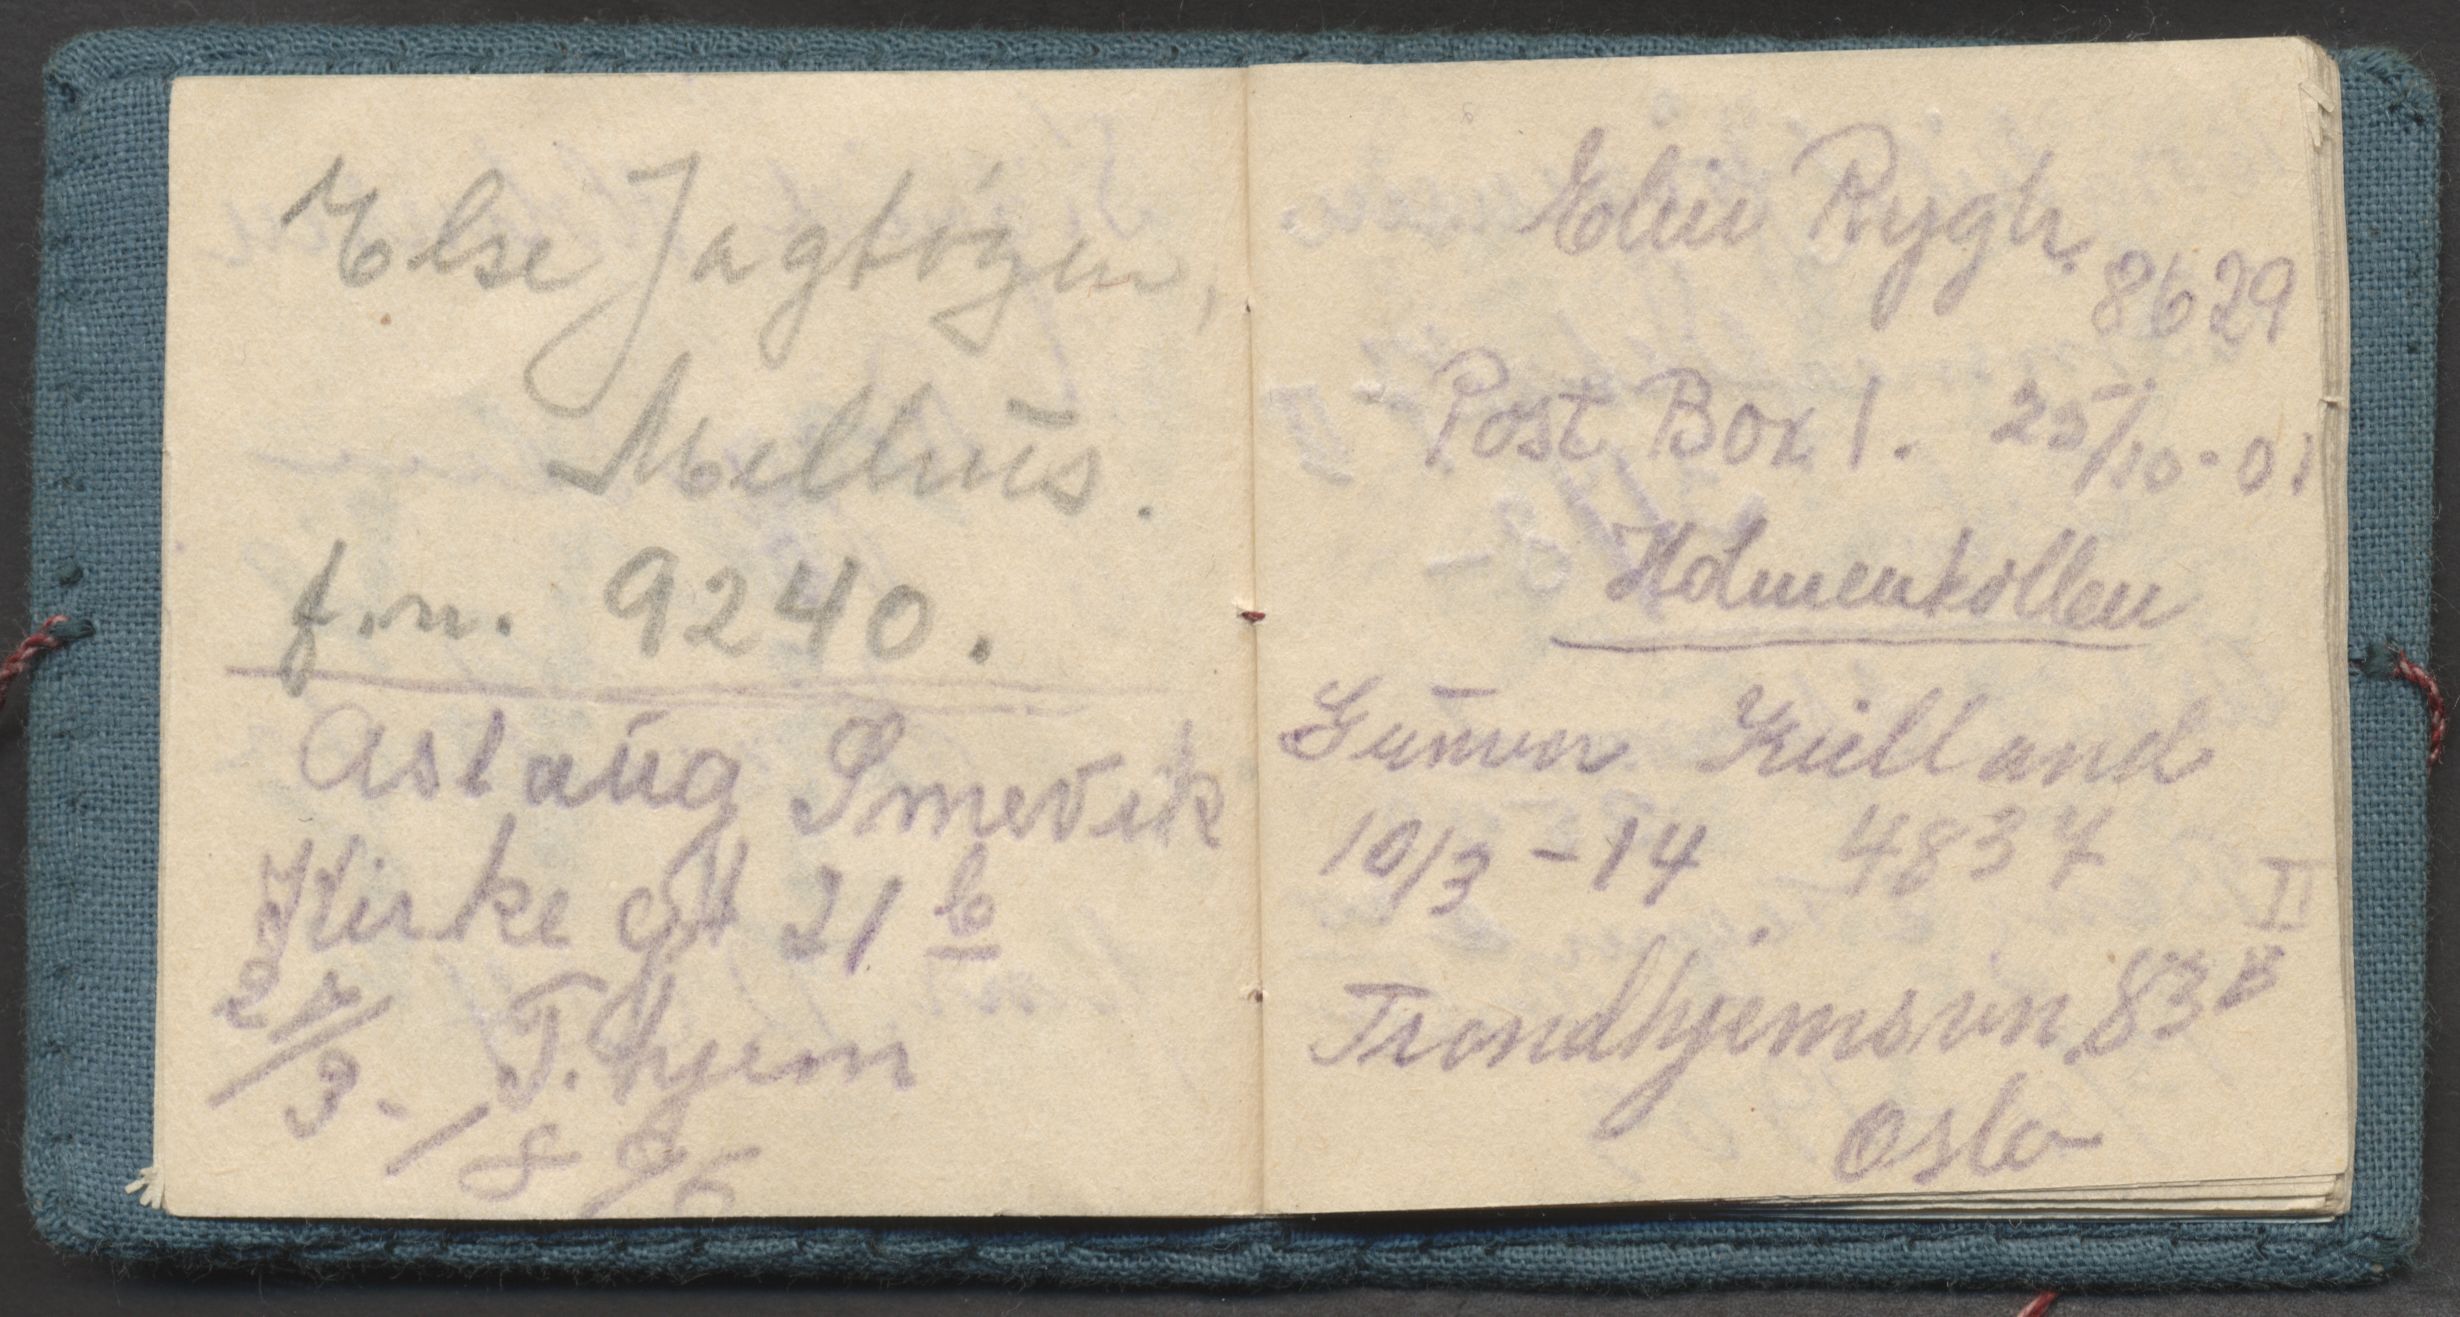 Else Jagtøyen,
Melhus.
f.n. 9240.
Aslaug Smevik
Kirke gt 21 b
27/3-18
T. hjem
Elin Rygh.
8629
Post Box 1. 25/10-01
Holmenkollen
Gunvor Kielland
10/3 - 14 4837
II
Trondhjemsvn. 83 B
Oslo